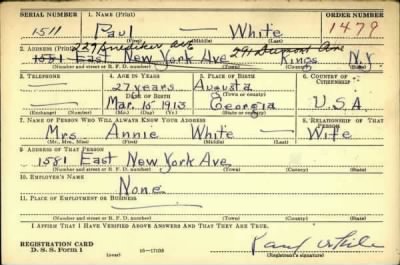 SERIAL NUMBER 1. NAME (Print) ORDER NUMBER
1511 Paul — White 1479
(First) (Middle) (Last)
227 Snediker Ave 291 Dumont Ave
2. ADDRESS (Print)
1581 East New York Ave Kings N.Y
(Number and street or R. F. D. number) (Town) (County) (State)
3. TELEPHONE 4. AGE IN YEARS 5. PLACE OF BIRTH 6. COUNTRY OF CITIZENSHIP
— 27 years Augusta
DATE OF BIRTH (Town or county)
— Mar. 15 1913 Georgia U.S.A
(Exchange) (Number) (Mo.) (Day) (Yr.) (State or country)
7. NAME OF PERSON WHO WILL ALWAYS KNOW YOUR ADDRESS 8. RELATIONSHIP OF THAT PERSON
Mrs. Annie White — Wife
(Mr., Mrs., Miss) (First) (Middle) (Last)
9. ADDRESS OF THAT PERSON
1581 East New York Ave
(Number and street or R. F. D. number) (Town) (County) (State)
10. EMPLOYER'S NAME
None
11. PLACE OF EMPLOYMENT OR BUSINESS
(Number and street or R. F. D. number) (Town) (County) (State)
I AFFIRM THAT I HAVE VERIFIED ABOVE ANSWERS AND THAT THEY ARE TRUE.
REGISTRATION CARD
D. S. S. Form 1 (over) Paul White
(Registrant's signature)